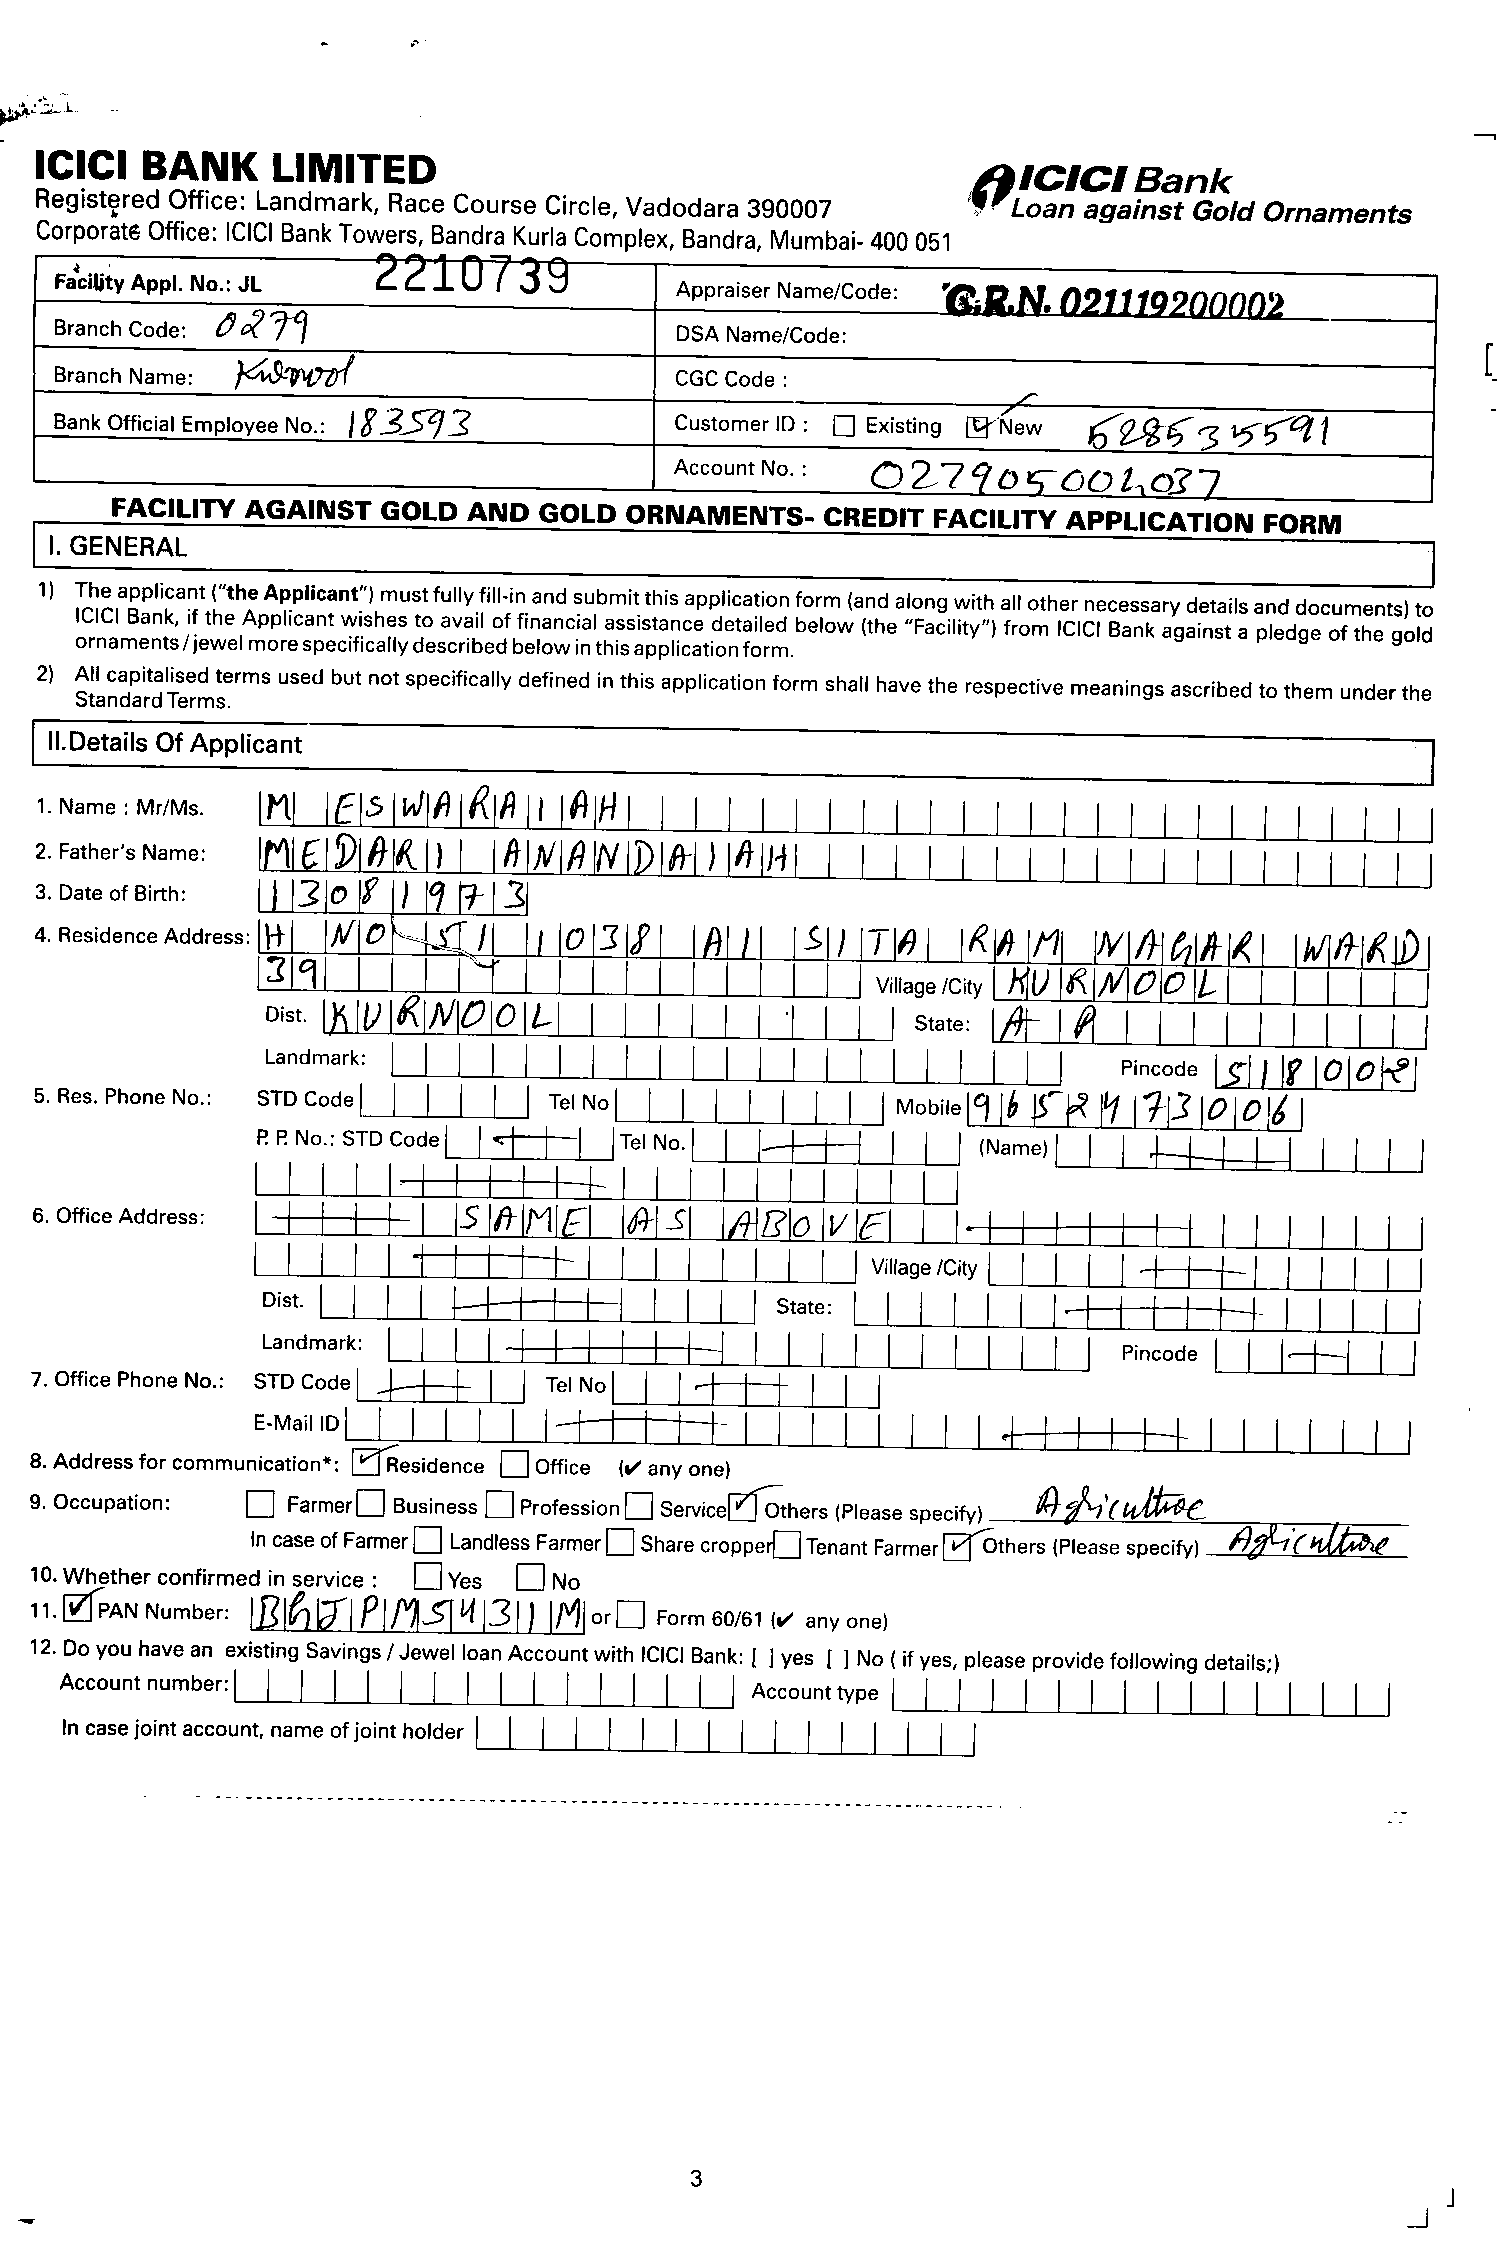 ICICI BANK LIMITED
Registered Office: Landmark, Race Course Circle, Vadodara 390007
Corporate Office: ICICI Bank Towers, Bandra Kurla Complex, Bandra, Mumbai- 400 051
ICICI Bank
Loan against Gold Ornaments
Facility Appl. No.: JL 2210739
Appraiser Name/Code: G.R.N. 021119200002
Branch Code: 0279
DSA Name/Code:
Branch Name: Kurnool
CGC Code :
Bank Official Employee No.: 183593
Customer ID : Existing New 528535591
Account No. : 027905002037
FACILITY AGAINST GOLD AND GOLD ORNAMENTS- CREDIT FACILITY APPLICATION FORM
I. GENERAL
1) The applicant ("the Applicant") must fully fill-in and submit this application form (and along with all other necessary details and documents) to
ICICI Bank, if the Applicant wishes to avail of financial assistance detailed below (the "Facility") from ICICI Bank against a pledge of the gold
ornaments / jewel more specifically described below in this application form.
2) All capitalised terms used but not specifically defined in this application form shall have the respective meanings ascribed to them under the
Standard Terms.
II.Details Of Applicant
1. Name : Mr/Ms. M ESWARAIAH
2. Father's Name: MEDARI ANANDAIAH
3. Date of Birth: 13081973
4. Residence Address: H NO 51 1038 A1 SITA RAM NAGAR WARD
39 Village /City KURNOOL
Dist. KURNOOL State: A P
Landmark: Pincode 518002
5. Res. Phone No.: STD Code Tel No Mobile 9652473006
P. P. No.: STD Code Tel No. (Name)
6. Office Address: SAME AS ABOVE
Village /City
Dist. State:
Landmark: Pincode
7. Office Phone No.: STD Code Tel No
E-Mail ID
8. Address for communication*: ✓ Residence Office (✔ any one)
9. Occupation: Farmer Business Profession Service ✓ Others (Please specify) Agriculture
In case of Farmer Landless Farmer Share cropper Tenant Farmer ✓ Others (Please specify) Agriculture
10. Whether confirmed in service : Yes No
11. ✓ PAN Number: BGJPM5431M or Form 60/61 (✔ any one)
12. Do you have an existing Savings / Jewel loan Account with ICICI Bank: [ ] yes [ ] No ( if yes, please provide following details;)
Account number: Account type
In case joint account, name of joint holder
3